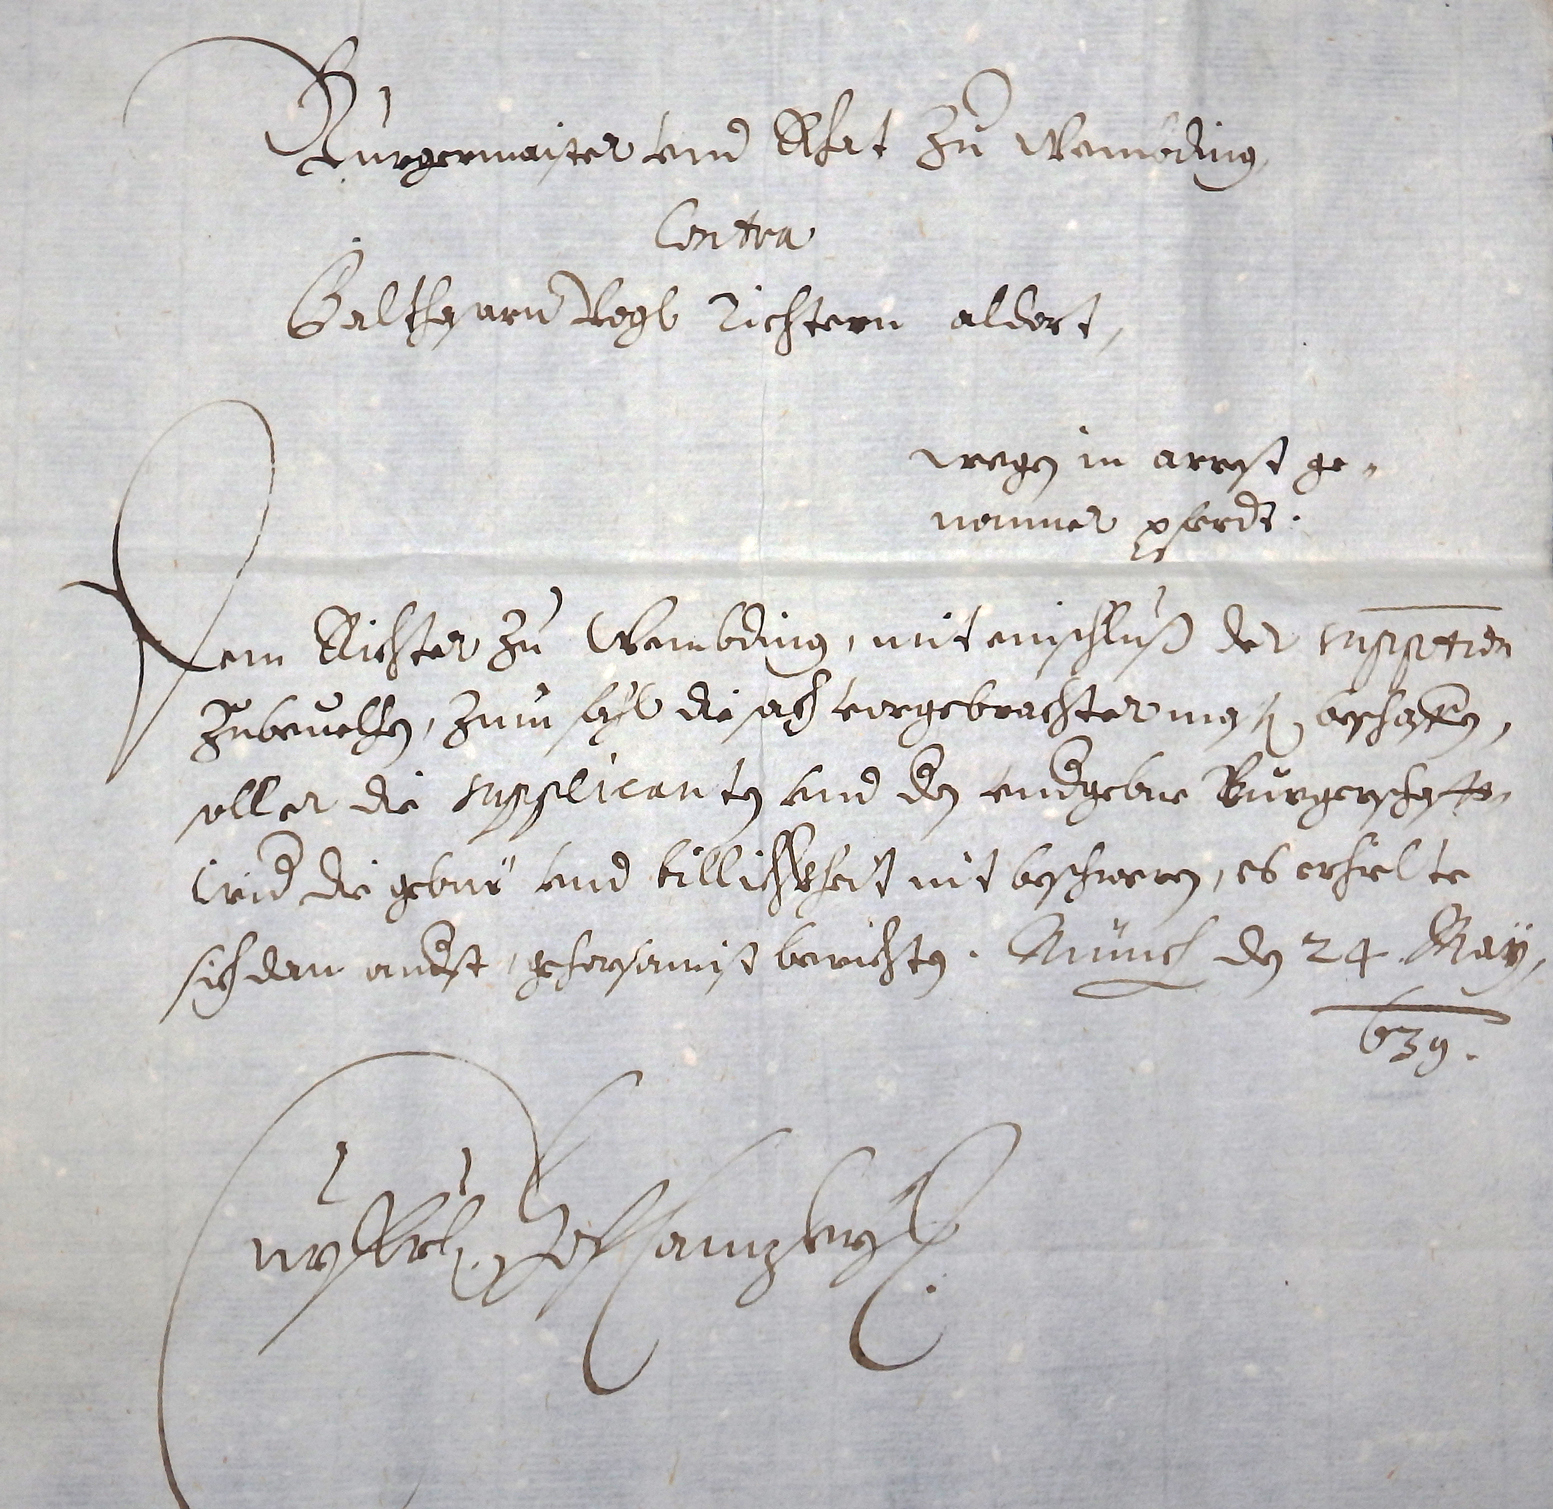 Burgermaister und Rhat Zu Wembding
Contra
Balthasarn Vogl Richtern aldort,
wegen in arrest ge-
nomner pferdt.
Dem Richter Zu Wembding, mit einschluß der supption
Zubeuelhen, Zum fahl die sach vorgebrachter massen beschaffen,
soll er die supplicanten und den Burgerschafft
wid die gebür und billichkheit nit beschweren, es erhielte
sich dan anderst, gehorsamist berichten. Münch den 24. May,
639.